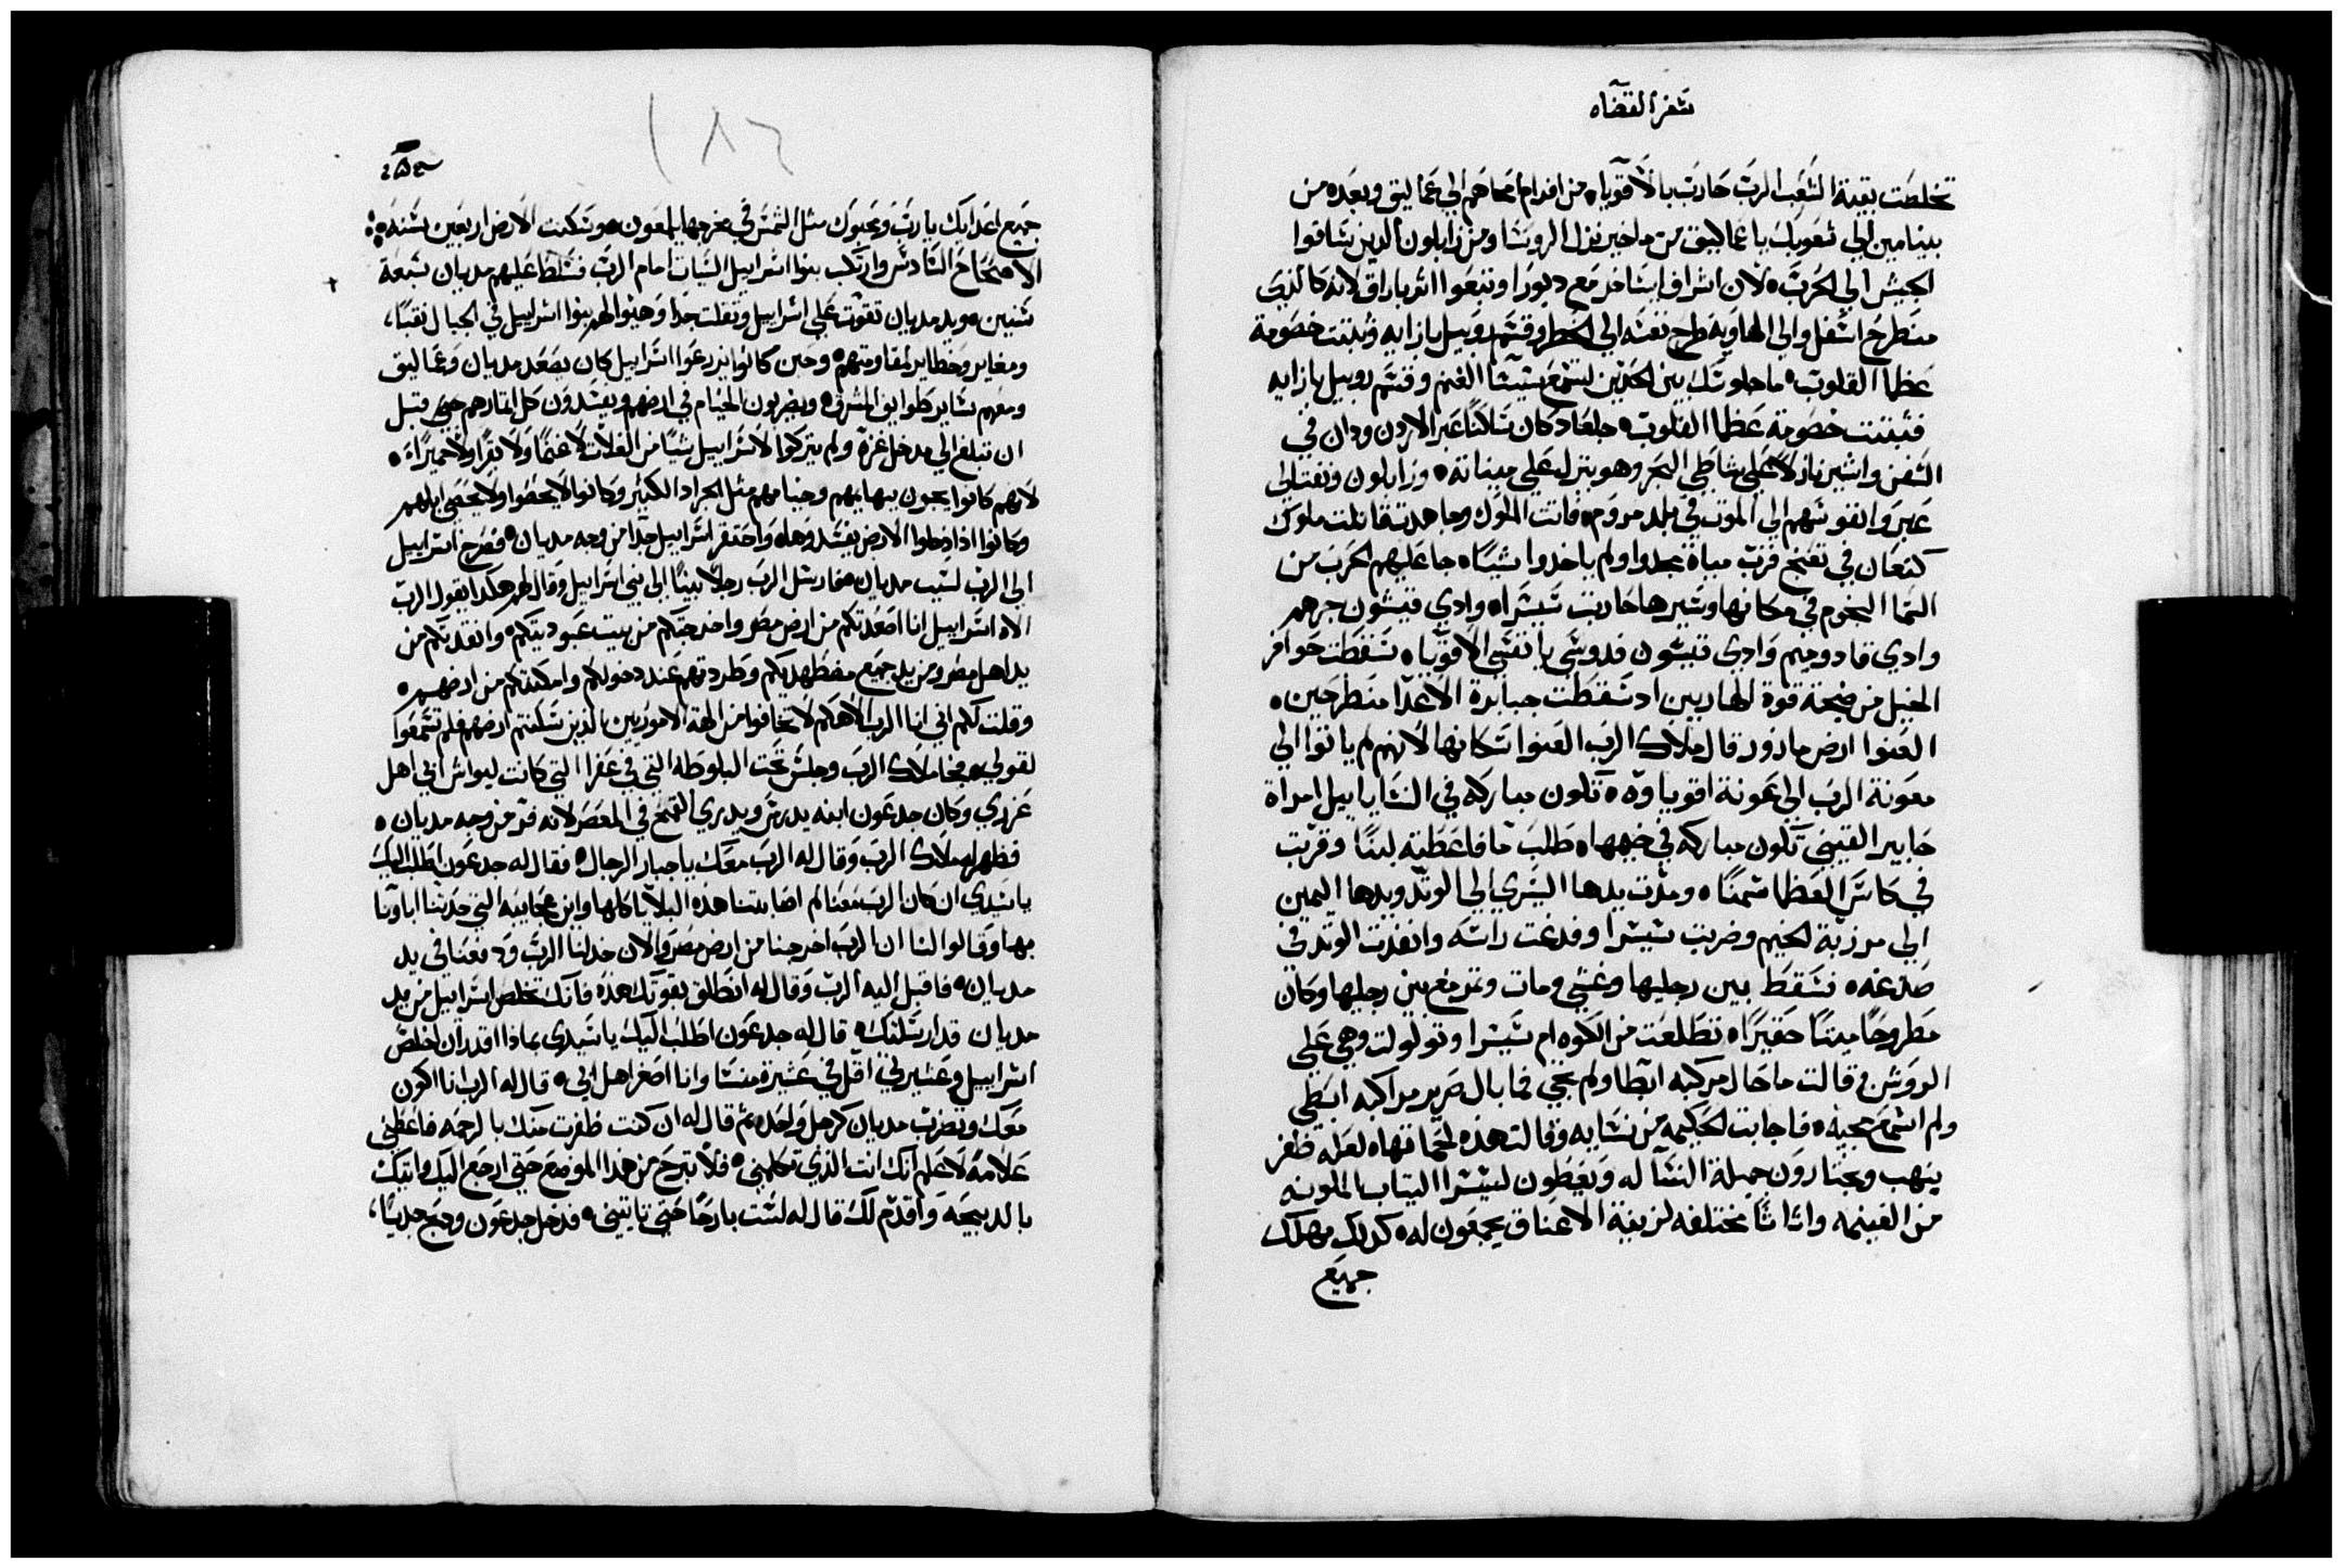 سفر القضاه
تخلصت بقية الشعب الرب حارب بالاقويا من افرام محاهم الي عماليق وبعده من
بنيامين الي شعوبك يا عماليق من ماخير نزل الروسا ومن زابلون الذين ساقوا
الجيش الي الحرب لان اشراف ايساخر مع ديورا وتبعوا اثر باراق لانه كالذي
منطرح اسفل والي الهاويه طرح نفسه الي الخطر وقسم روبيل بازايه وثبتت خصومة
عظما القلوب ما حلوسك بين الحدين لتسمع الغنم وقسم روبيل بازايه
فثبتت خصومة عظما القلوب جلعاد كان ساكنا عبر الاردن ودان في
السفن واشير نازلا علي شاطي البحر وهو ينزل علي مينانه وزابلون ونفتالي
عيروا نفوسهم الي الموت في بلد مروم فاتت الملوك وجاهدت قاتلت ملوك
كنعان في تعنخ قرب مياة مجدوا ولم ياخدوا شيا جا عليهم الحرب من
السما النجوم في مكانها وسيرها حاربت سيسرا وادي قيسون جرهم
وادي قادوميم وادي قيسون فدوسي يا نفسي الاقويا سقطت حوافر
الخيل من ضجة قوة الهاربين اد سقطت جبابرة الاعدا منطرحين
العنوا ارض مازور قال ملاك الرب العنوا سكانها لانهم لم ياتوا الي
معونة الرب الي عمونة اقوياوه تكون مباركه في النسا ياييل امراة
حابير القيني تكون مباركه في خبيها طلب ما فاعطيته لبنا وقربت
في كاس العظما سمنا ومدت يدها اليسري الي الوتد ويدها اليمين
الي مرزبة الخيم وضربت سيسرا وفدغت راسه وانفدت الوتد في
صدغه فسقط بين رجليها وغشي ومات وتمرمغ بين رجليها وكان
مطروحا ميتا حقيرا تطلعت من الكوه ام سيسرا وتولولت وهي علي
الروشن قالت ما حال مركبه ابطا ولم يجي فما بال صرير مراكبه ابطي
ولم اسمع مجيه فاجابت الحكيمه من نسايه وقالت هذه لحماتها لعله ظفر
ينهب ويختارون جميلة النسا له ويعطون لسيسرا التياب الملونه
من الغنيمه واثاثا مختلفه لزينة الاعناق يجمعون له كدلك مهلك
جميع
جميع اعدايك يارب ومحبوك مثل الشمس في مخرجها يلمعون وسكنت الارض اربعين سنه
الاصحاح السادس وارتكب بنوا اسراييل السيات امام الرب فسلط عليهم مديان سبعة
سنين ويد مديان تقوت علي اسراييل وتقلت جدا وهيوا لهم بنوا اسراييل في الجبال نقبا،
ومغاير وحظاير لمقاومتهم وحين كانوا يزرعوا اسراييل كان يصعد مديان وعماليق
ومعهم ساير طوايف المشرق ويضربون الخيام في ارضهم ويفسدون كل اثمارهم حتي قبل
ان تبلغ الي مدخل غزة ولم يتركوا لاسراييل شيا من الغلات لا غنما ولا بقرا ولا حميرا
لانهم كانوا يجون ببهايمهم وخيامهم مثل الجراد الكثير وكانوا لا يحصوا ولا يحصي ابلهم
وكانوا اذا دخلوا الارض يفسدوها واحتقر اسراييل جدا من وجه مديان فصرخ اسراييل
الي الرب لسبب مديان فارسل الرب رجلا نبيا الي بني اسراييل وقال لهم هكدا يقول الرب
الاه اسراييل انا اصعدتكم من ارض مصر واخرجتكم من بيت عبوديتكم وانقدتكم من
يد اهل مصر ومن يد جميع مضطهديكم وطردتهم عند دخولكم وامكنتكم من ارضهم
وقلت لكم اني انا الرب الاهكم لا تخافوا من الهة الاموريين الذين سكنتم ارضهم فلم تسمعوا
لقولي فجا ملاك الرب وجلس تحت البلوطه التي في عفرا التي كانت ليواش ابي اهل
عزري وكان جدعون ابنه يدرس ويدري القمح في المعصر لانه فر من وجه مديان
فظهر له ملاك الرب وقال له الرب معك يا جبار الرجال فقال له جدعون اطلب اليك
يا سيدي ان كان الرب معنا لم اصابتنا هذه البلايا كلها واين عجايبه التي حدثنا اباونا
بها وقالوا لنا ان الرب اخرجنا من ارض مصر والان خدلنا الرب ودفعنا في يد
مديان فاقبل اليه الرب وقال له انطلق بقوتك هذه فانك تخلص اسراييل من يد
مديان قد ارسلتك قال له جدعون اطلب اليك يا سيدي بماذا اقدر ان اخلص
اسراييل وعشيرتي اقل في عشيرة منسا وانا اصغر اهل ابي قال له الرب انا اكون
معك وتضرب مديان كرجل واحد ثم قال له ان كنت ظفرت منك بالرحمه فاعطني
علامة لاعلم انك انت الذي تكلمني فلا تبرح من هذا الموضع حتي ارجع اليك واتيك
بالدبيحة واقدم لك قال له لست بارحا حتي تاتيني فدخل جدعون ودبح جديا،